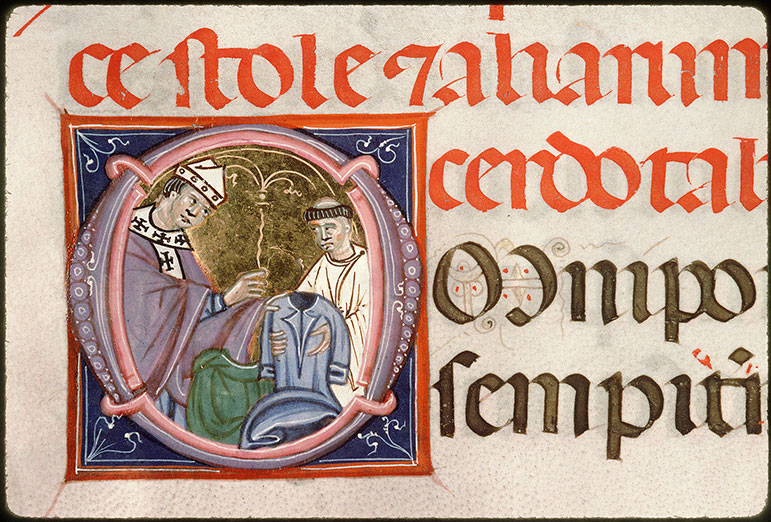 ce stole ⁊ aliarum
cerdotal
OMnipo
sempit